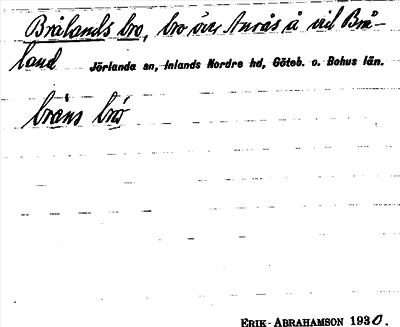 Brålands bro, bro över Anrås å vid Brå-
land Jörlanda sn, Inlands Nordre hd, Göteb. o. Bohus län.
bräns brö
ERIK-ABRAHAMSON 1930.